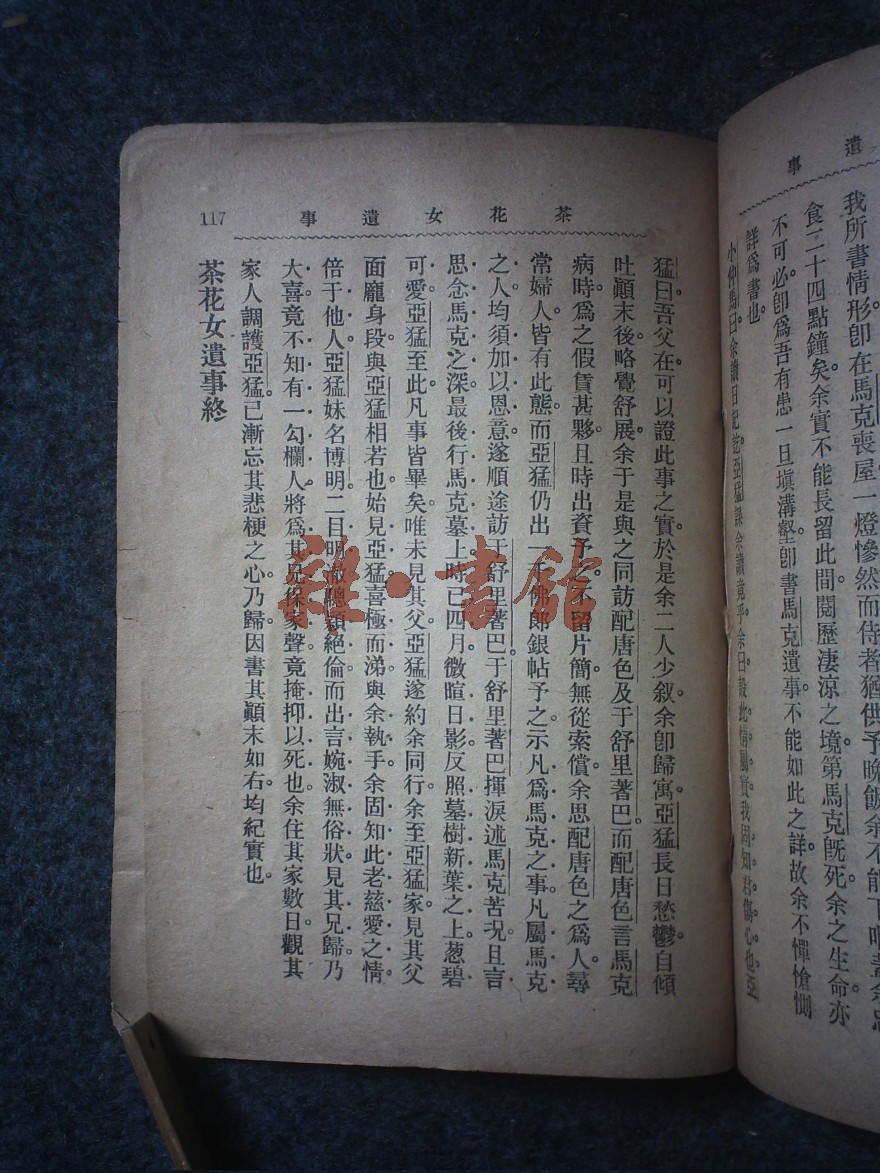 遺事
我所書情形卽在馬克喪屋一燈慘然而侍者猶供予晚飯余不能下咽
食二十四點鐘矣。余實不能長留此間閱歷凄涼之境。第馬克旣死余之生命亦
不可必卽爲吾有患一旦塡溝壑卽書馬克遺事。不能如此之詳故余不憚愴惻
詳爲書也。
小仲馬曰余讀日記訖亞猛課余讀竟乎余曰設此情屬實我固知君傷心也亞
茶花女遺事
117
猛曰吾父在可以證此事之實。於是余二人少叙。余卽歸寓。亞猛長日愁鬱。自傾
吐顚末後。略覺舒展。余于是與之同訪配唐色及于舒里著巴。而配唐色言馬克
病時。爲之假貲甚夥。且時出資予之。不留片簡。無從索償。余思配唐色之爲人。尋
常婦人。皆有此態。而亞猛仍出一千佛郎銀帖予之。示凡爲馬克之事。凡屬馬克
之人。均須加以恩意。遂順途訪于舒里著巴。于舒里著巴揮淚述馬克苦况。且言
思念馬克之深。最後行馬克墓上。時已四月。微暄日影。反照墓樹新葉之上。葱碧
可愛。亞猛至此凡事皆畢矣。唯未見其父。亞猛遂約余同行。余至亞猛家見其父
面龐身段。與亞猛相若也。始見亞猛喜極而涕。與余執手。余固知此老慈愛之情
倍于他人。亞猛妹名博明。二目明澈。聰穎絕倫。而出言婉淑無俗狀。見其兄歸。乃
大喜。竟不知有一勾欄人。將爲其兄保家聲。竟掩抑以死也。余住其家數日。觀其
家人調護亞猛。已漸忘其悲梗之心。乃歸。因書其顚末如右。均紀實也。
茶花女遺事終
雜·書館